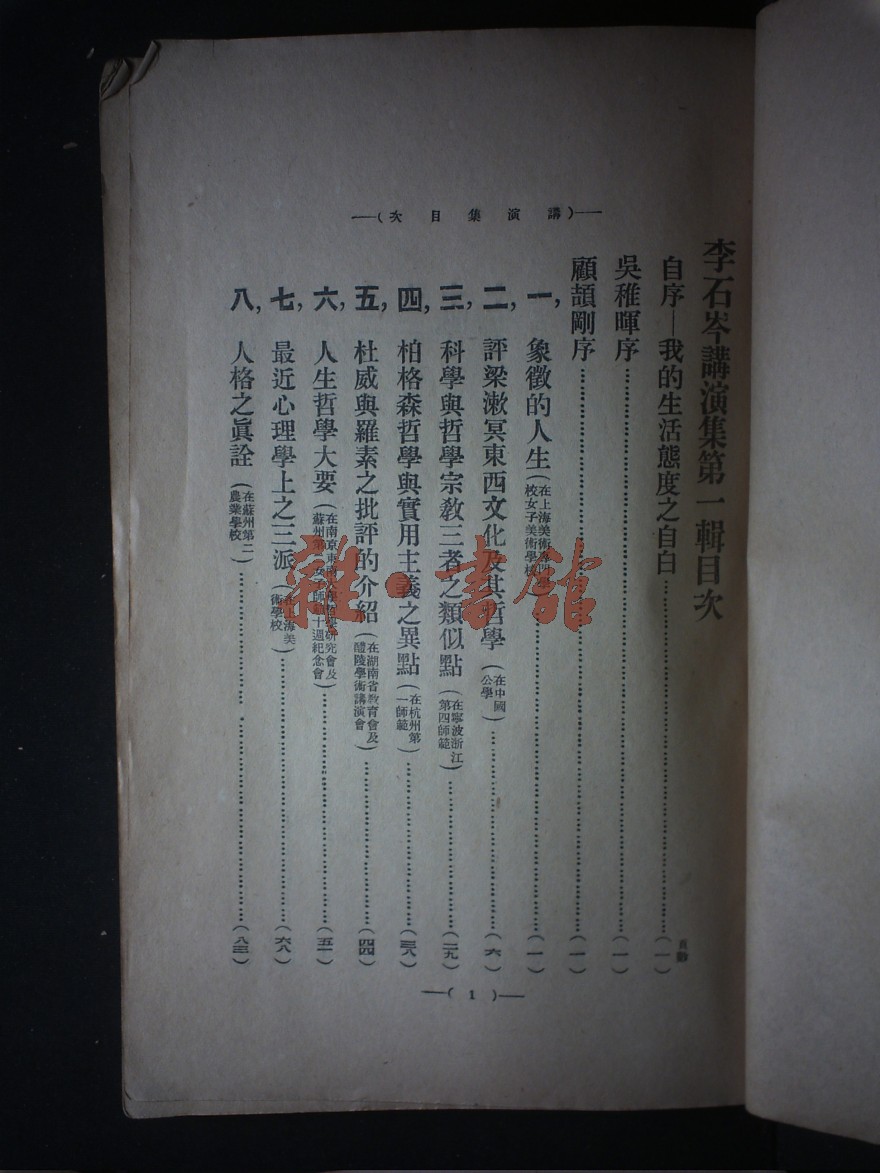 —(講演集目次)—
李石岑講演集第一輯目次
頁數
自序—我的生活態度之自白…………(一)
吳稚暉序…………(一)
顧頡剛序…………(一)
一,象徵的人生(在上海美術專門學校女子美術學校)…………(一)
二,評梁漱冥東西文化及其哲學(在中國公學)…………(六)
三,科學與哲學宗教三者之類似點(在寧波浙江第四師範)…………(二九)
四,柏格森哲學與實用主義之異點(在杭州第一師範)…………(三八)
五,杜威與羅素之批評的介紹(在湖南省教育會及醴陵學術講演會)…………(四四)
六,人生哲學大要(在南京東南大學哲學研究會及蘇州第一女子師範十週紀念會)…………(五一)
七,最近心理學上之三派(在上海美術學校)…………(六八)
八,人格之眞詮(在蘇州第二農業學校)…………(八三)
—( 1 )—
雜·書館